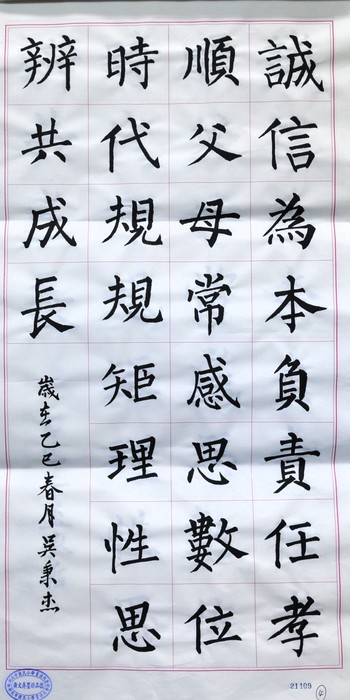 誠信為本負責任孝
順父母常感思數位
時代規規矩理性思
辨共成長
歲在乙巳春月吳秉杰
21109